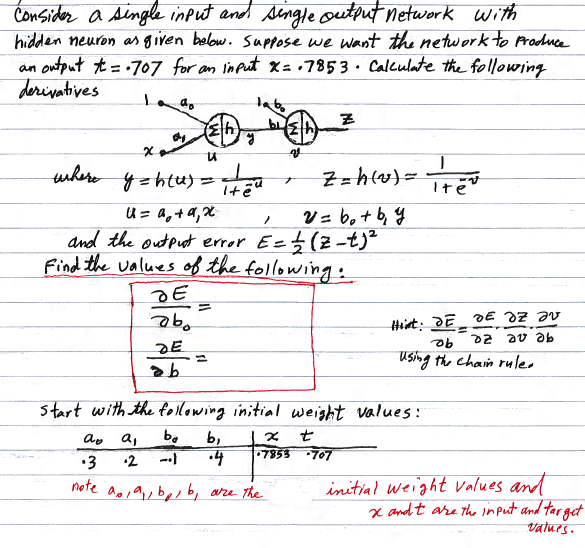 Consider a single input and single output network with
hidden neuron as given below. Suppose we want the network to produce
an output t = .707 for an input x = .7853. Calculate the following
derivatives
1 a₀ 1 b₀
Σ|h y b₁ Σ|h z
a₁
x u v
where y = h(u) = 1/(1+e⁻ᵘ) , z = h(v) = 1/(1+e⁻ᵛ)
u = a₀ + a₁x , v = b₀ + b₁ y
and the output error E = ½ (z – t)²
Find the values of the following:
∂E/∂b₀ =
∂E/∂b =
Hint: ∂E/∂b = ∂E/∂z · ∂z/∂v · ∂v/∂b
Using the chain rule.
Start with the following initial weight values:
a₀ a₁ b₀ b₁ x t
.3 .2 –.1 .4 .7853 .707
note a₀, a₁, b₀, b₁ are the initial weight values and
x and t are the input and target
values.